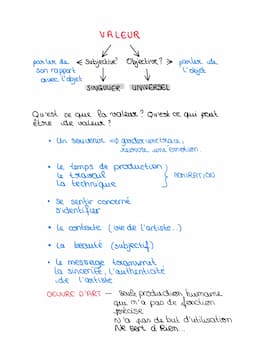 VALEUR
parler de ← subjective? Objective? → parler de
son rapport l'objet
avec l'objet
SINGULIER UNIVERSEL
Qu'est ce que la valeur? Qu'est ce qui peut
être de valeur?
• Un souvenir ⇒ garder une trace,
revivre une émotion.
• le temps de production
le travail ADMIRATION
la technique
• se sentir concerné
s'identifier
• le contexte (vie de l'artiste...)
• la beauté (subjectif)
• le message transmit
la sincérité, l'authenticité
de l'artiste
OEUVRE D'ART — seule production humaine
qui n'a pas de fonction
précise
N'a pas de but d'utilisation
Ne sert à Rien...